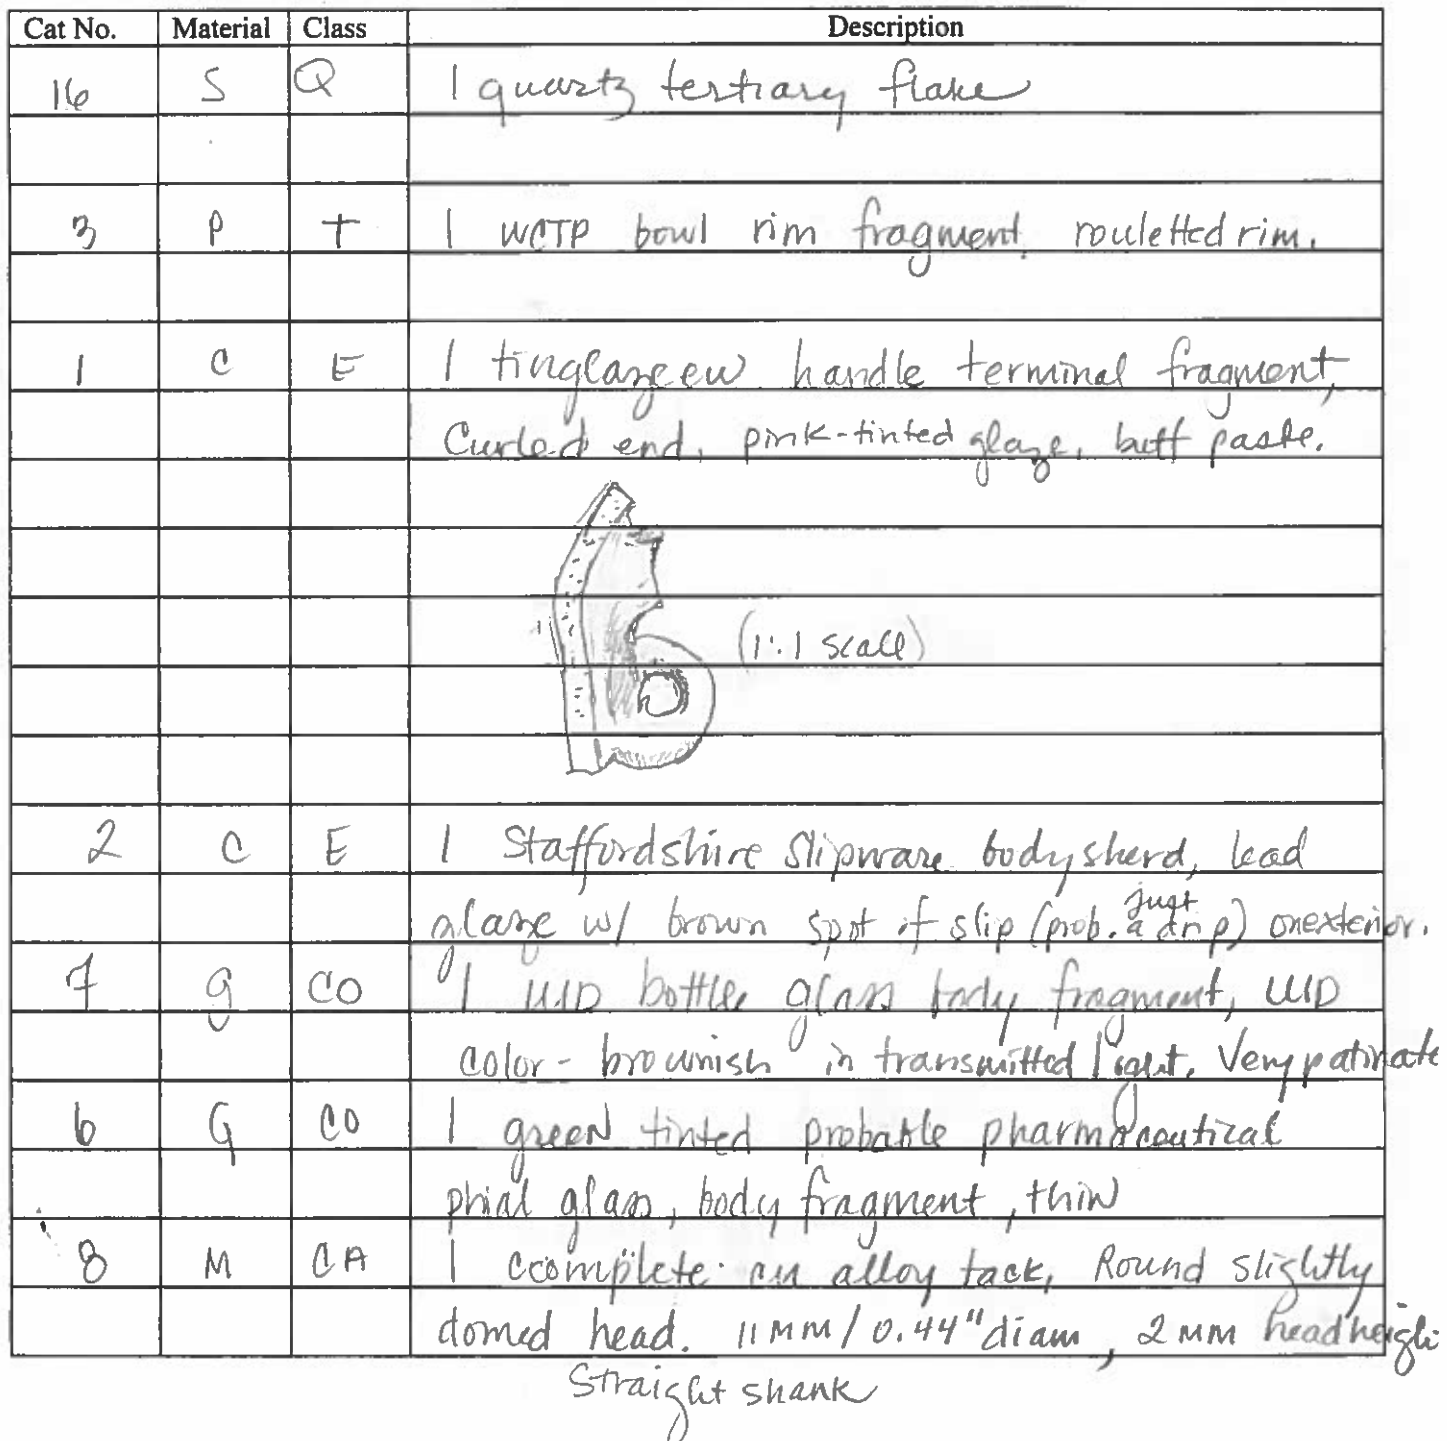 Cat No. Material Class Description
16 S Q 1 quartz tertiary flake
3 P T 1 WCTP bowl rim fragment, rouletted rim.
1 C E 1 tinglaze ew handle terminal fragment,
Curled end, pink-tinted glaze, buff paste.
(1:1 scale)
2 C E 1 Staffordshire Slipware body sherd, lead
glaze w/ brown spot of slip (prob. just a drip) on exterior.
7 G CO 1 UID bottle glass body fragment, UID
color - brownish in transmitted light. Very patinate
6 G CO 1 green tinted probable pharmaceutical
phial glass, body fragment, thin
8 M CA 1 ccomplete cu alloy tack, Round slightly
domed head. 11MM/0.44" diam, 2MM head heigh
Straight shank